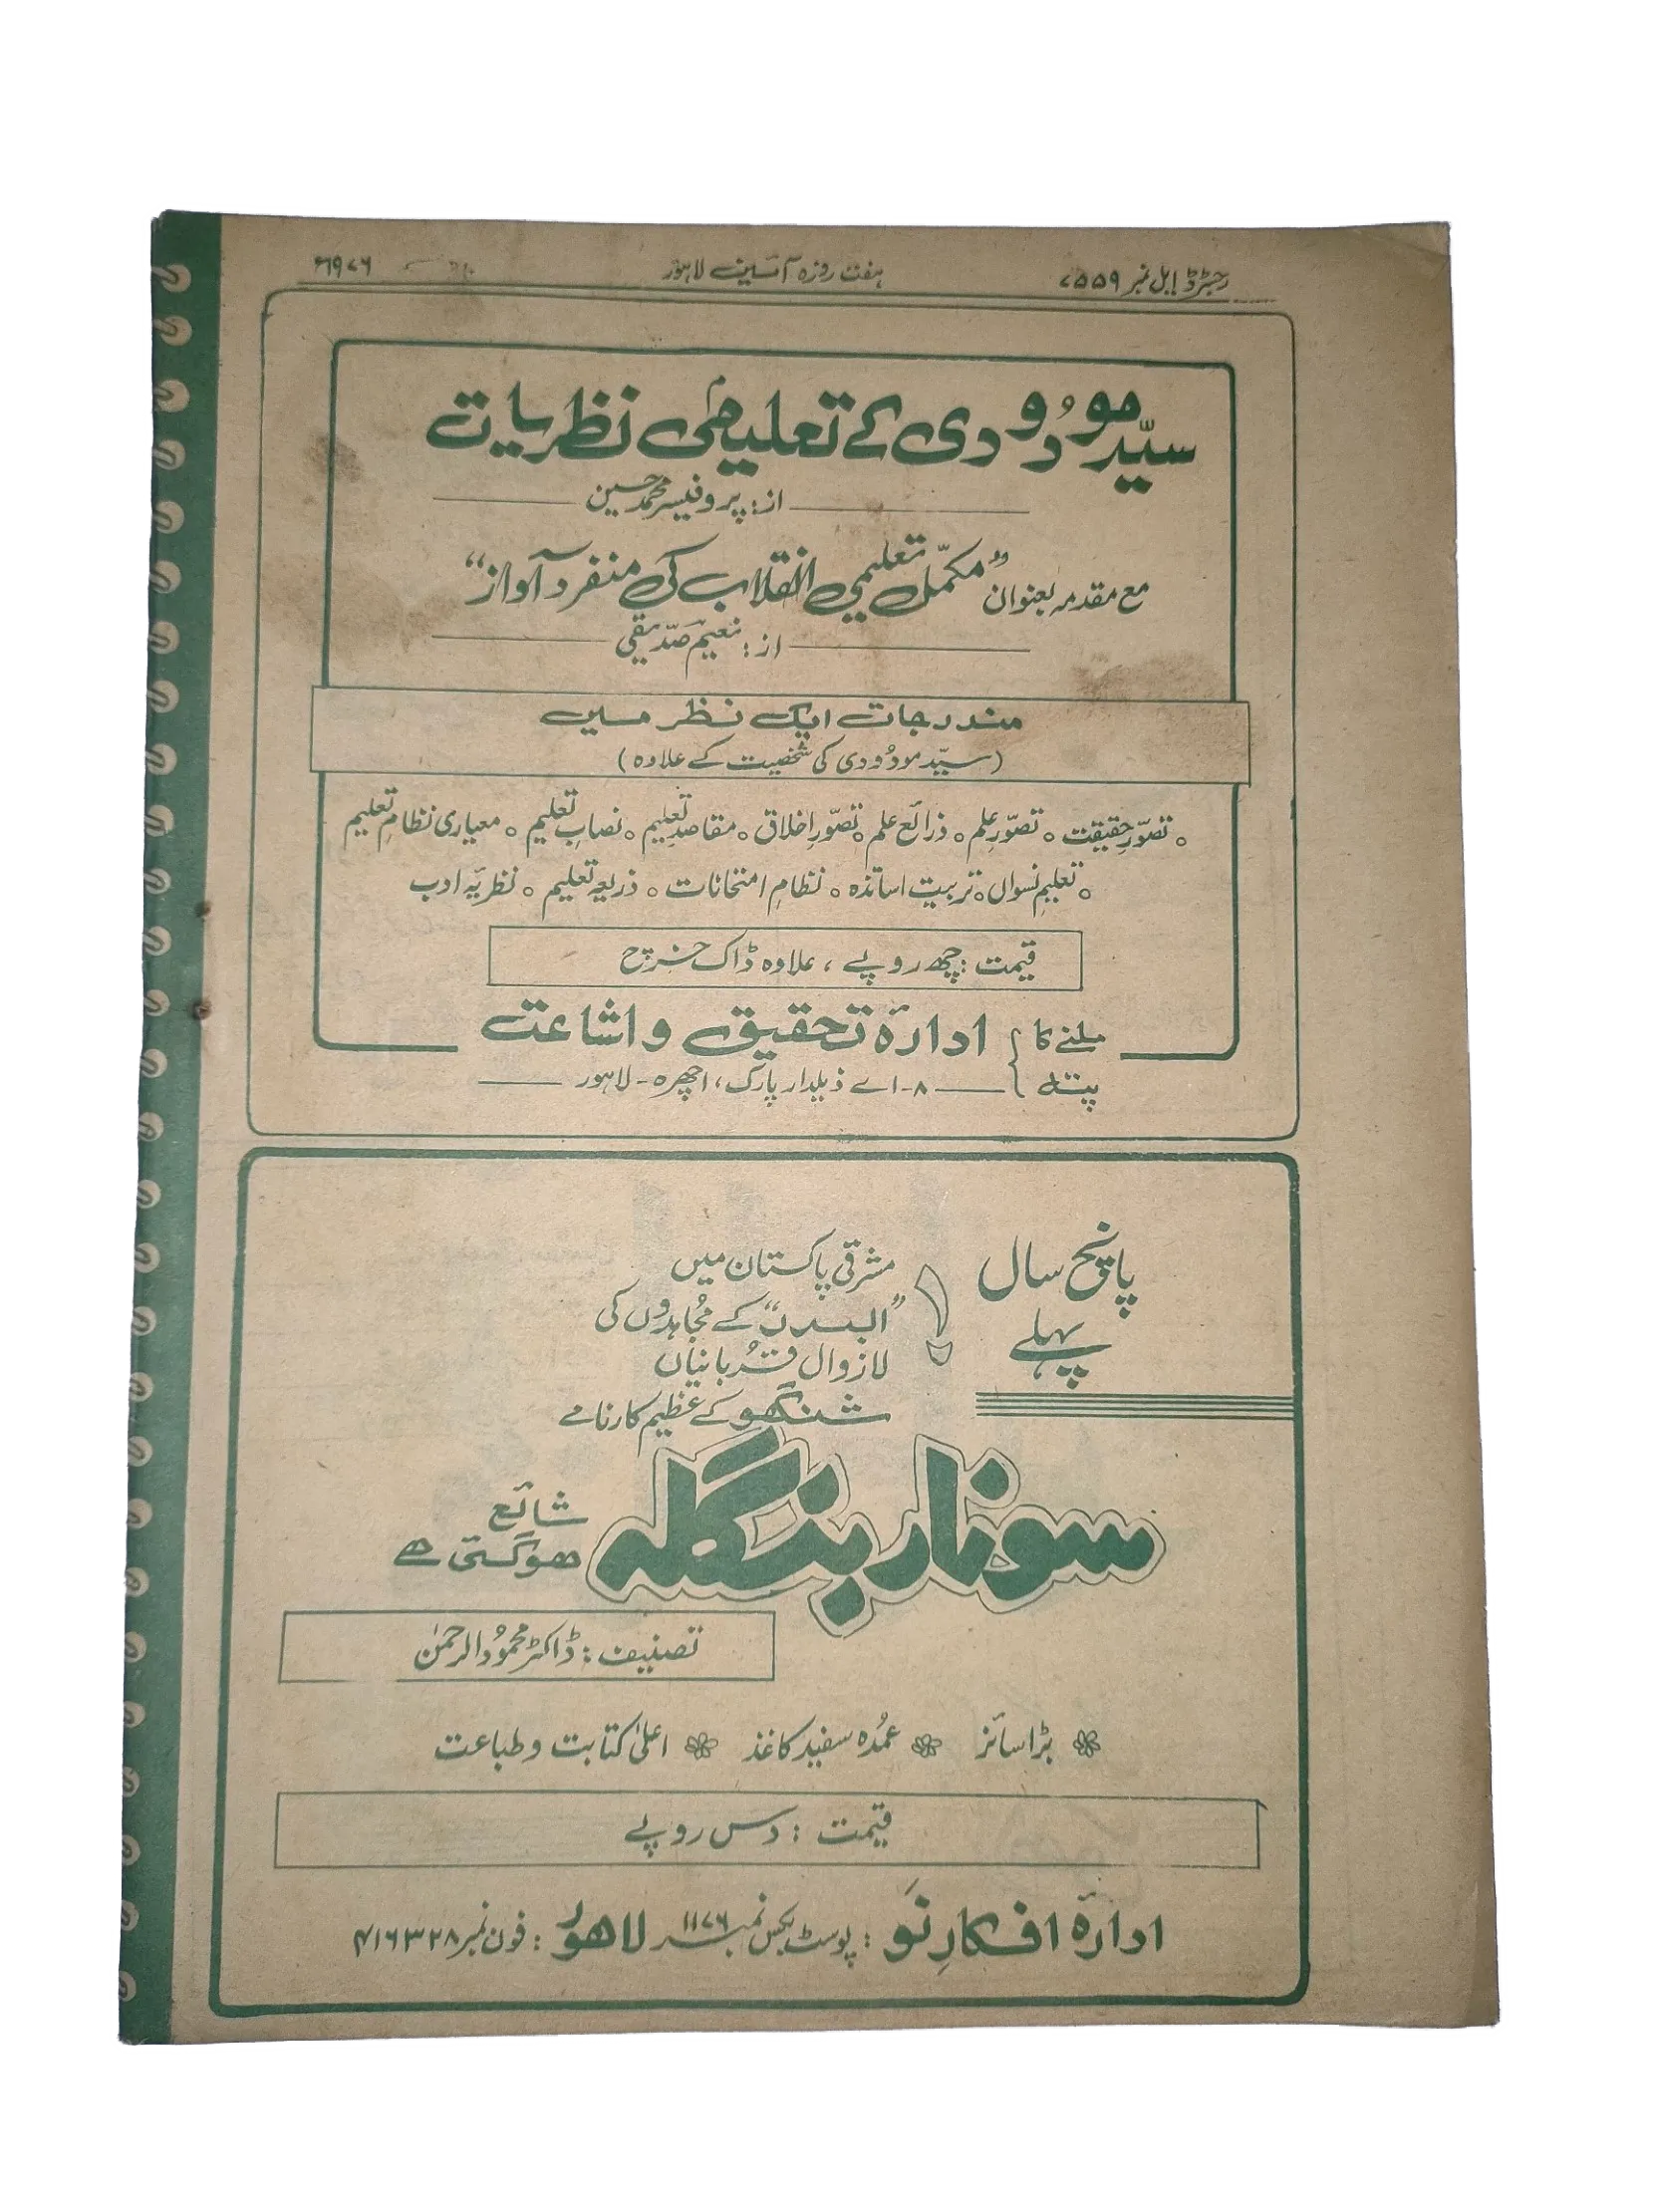 رجسٹرڈ ایل نمبر ۷۵۵۹
ہفت روزہ آئین لاہور
۱۹۷۶ء
سیّد مودُودی کے تعلیمی نظریات
از: پروفیسر محمد حسین
مع مقدمہ بعنوان ”مکمّل تعلیمی انقلاب کی منفرد آواز“
از: نعیم صدّیقی
مندرجات ایک نظر میں
(سیّد مودُودی کی شخصیت کے علاوہ)
○ تصوّرِ حقیقت ○ تصوّرِ علم ○ ذرائع علم ○ تصوّرِ اخلاق ○ مقاصدِ تعلیم ○ نصابِ تعلیم ○ معیاری نظامِ تعلیم
○ تعلیمِ نسواں ○ تربیت اساتذہ ○ نظامِ امتحانات ○ ذریعہ تعلیم ○ نظریۂ ادب
قیمت : چھ روپے ، علاوہ ڈاک خرچ
ملنے کا پتہ
ادارۂ تحقیق و اشاعت
۸-اے ذیلدار پارک، اچھرہ - لاہور
پانچ سال
پہلے
مشرقی پاکستان میں
”البدر“ کے مُجاہدوں کی
لازوال قُربانیاں
شنگھو کے عظیم کارنامے
سونار بنگلہ
شائع
ہوگئی ہے
تصنیف : ڈاکٹر محمودُالرحمٰن
بڑا سائز
عمُدہ سفید کاغذ
اعلیٰ کتابت و طباعت
قیمت : دس روپے
ادارۂ افکارِ نَو : پوسٹ بکس نمبر ۱۱۷۶ لاہور : فون نمبر ۴۱۶۳۲۸